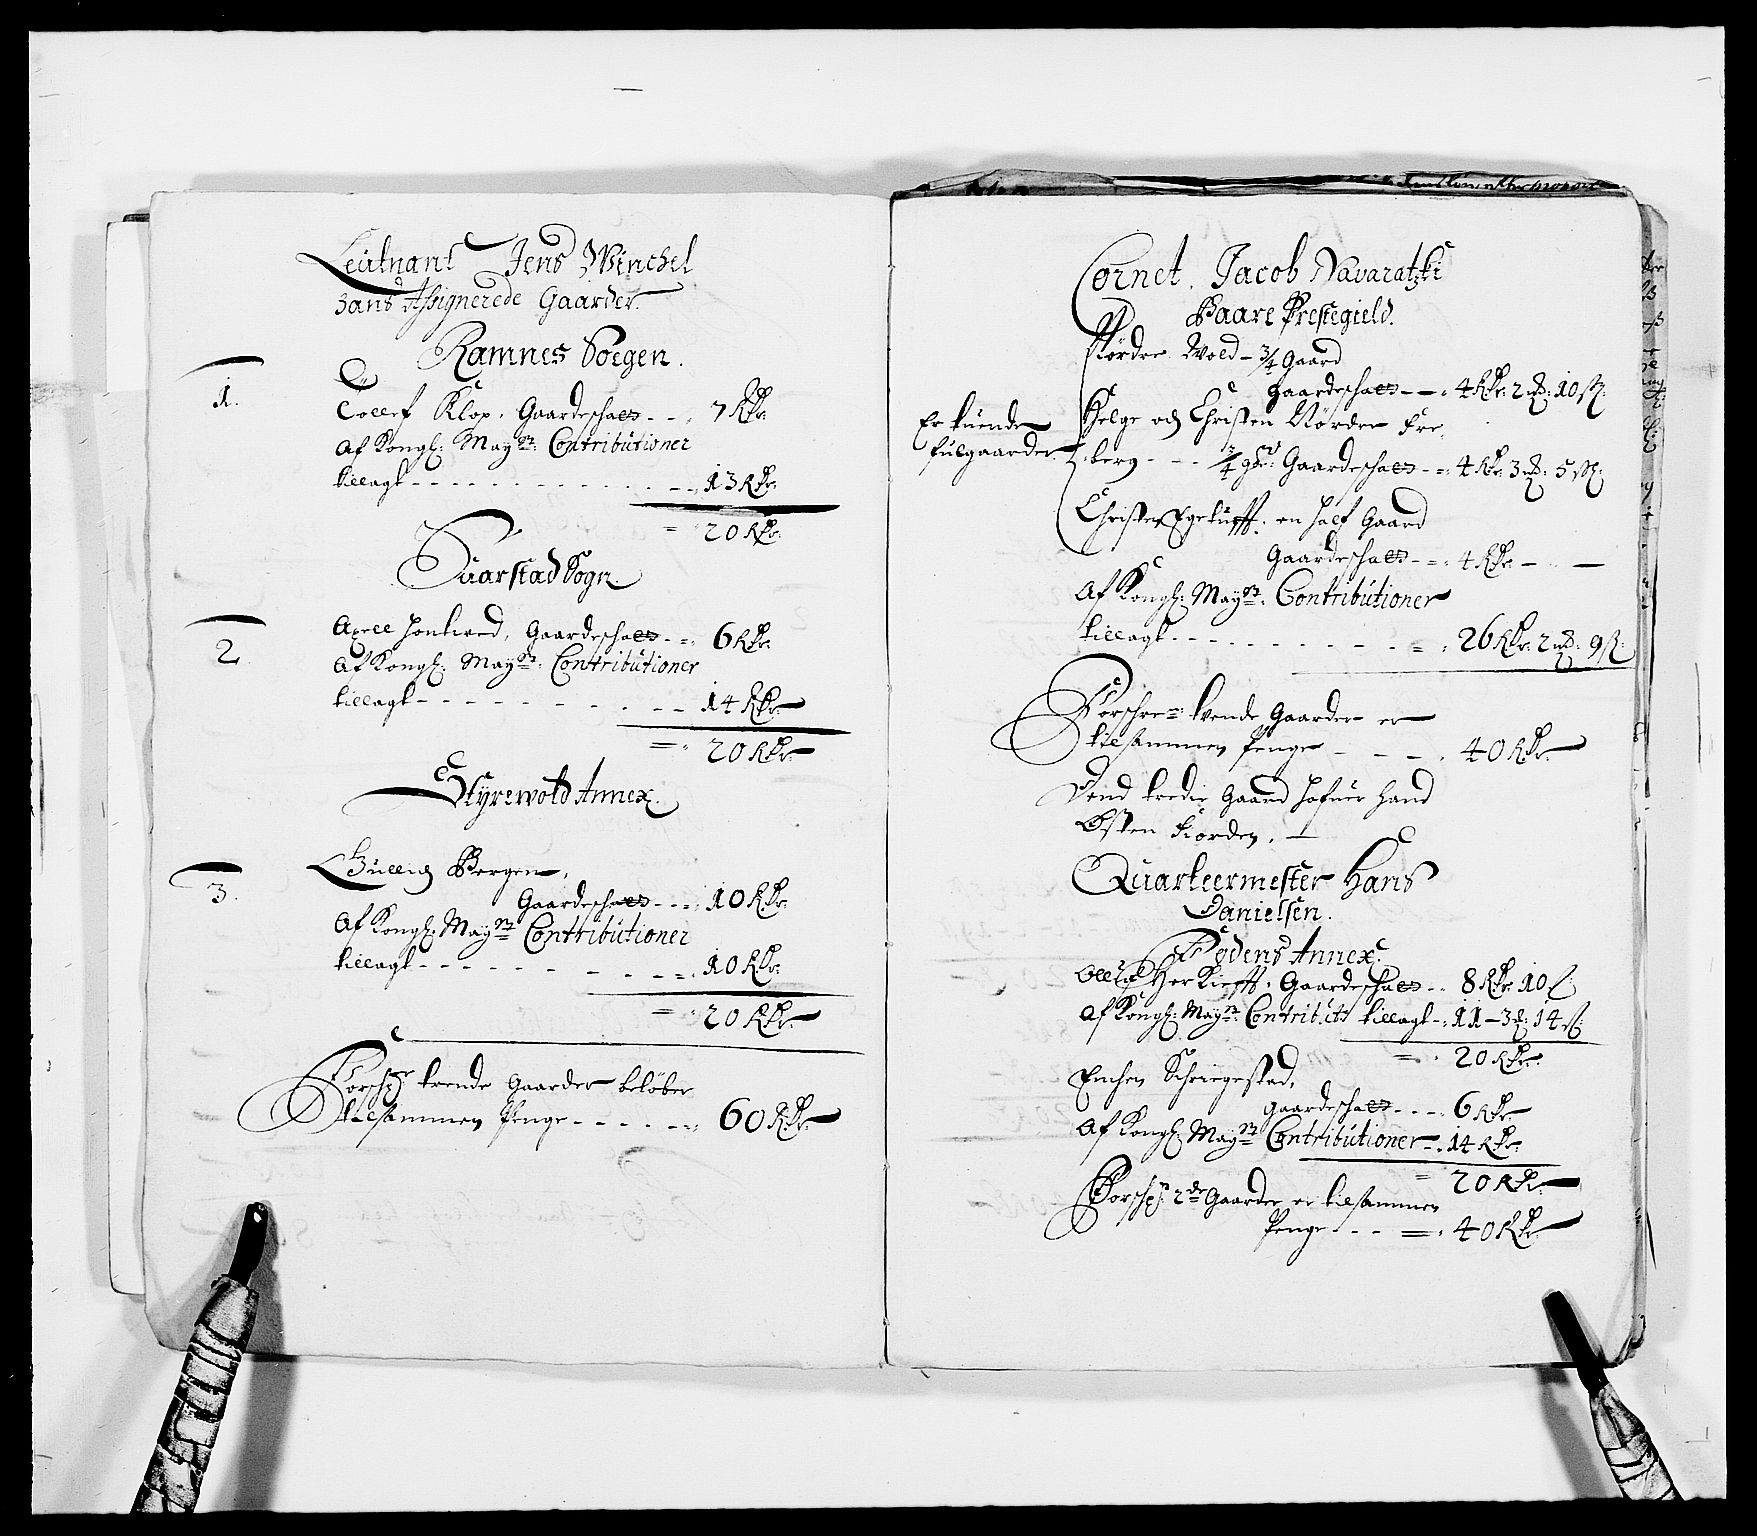 Leütnant Jens Winchel
hans Assignerede Gaarder.
Ramnes Soegen.
1.
Tollef Klop, Gaardeschatt - - 7 Rdr:
Af Kongl: May:tt: Contributioner
tillagt - - - - - - - - - - - 13 Rdr:
= 20 Rdr:
Suarstad Sogn.
2
Axell Honkved, Gaardeschatt - - 6 Rdr:
Af Kongl: May:tt: Contributioner
tillagt - - - - - - - - - - 14 Rdr:
= 20 Rdr:
Styrewold Annex.
3.
Gullich Bergen,
Gaardeschatt - - - 10 Rdr:
Af Kongl: May:tt Contributioner
tillagt - - - - - - - - - - 10 Rdr:
= 20 Rdr:
Forschr: trende Gaarder belöber
tilsammen Penge - - - - - - 60 Rdr:
Cornet Jacob Navaratzki
Baare Prestegield.
Nördre Wold - 3/4 Gaard
Gaardeschatt - - 4 Rdr: 2 mk: 10 ss:
Er tuende
fulgaarder
Helge och Christen Nördre Fre
berg - - - 3/4 gr: Gaardeschatt - - 4 Rdr: 3 mk: 5 ss:
Christen Egetufft. en half Gaard
Gaardeschatt - - 4 Rdr: - -
Af Kongl: May:tt: Contributioner
tillagt - - - - - - - - - - 26 Rdr: 2 mk: 9 ss:
Forschre:ne tvende Gaarder er
tilsammen Penge - - - 40 Rdr:
Dend tredie Gaard hafuer hand
Østen Fiorden. -
Quarteermester Hans
Danielsen.
Fodens Annex.
Olluf Herkiefft. Gaardeschatt - - 8 Rdr: 10 s:
Af Kongl: May:tt: Contributr tillagt - 11 - 3 mk: 14 s:
= 20 Rdr:
Emhen Schriegestad,
Gaardeschatt - - - 6 Rdr:
Af Kongl: May:tt Contributioner - 14 Rdr:
= 20 Rdr:
Forschr: 2de Gaarder er tilsammen
Penge - - = 40 Rdr: